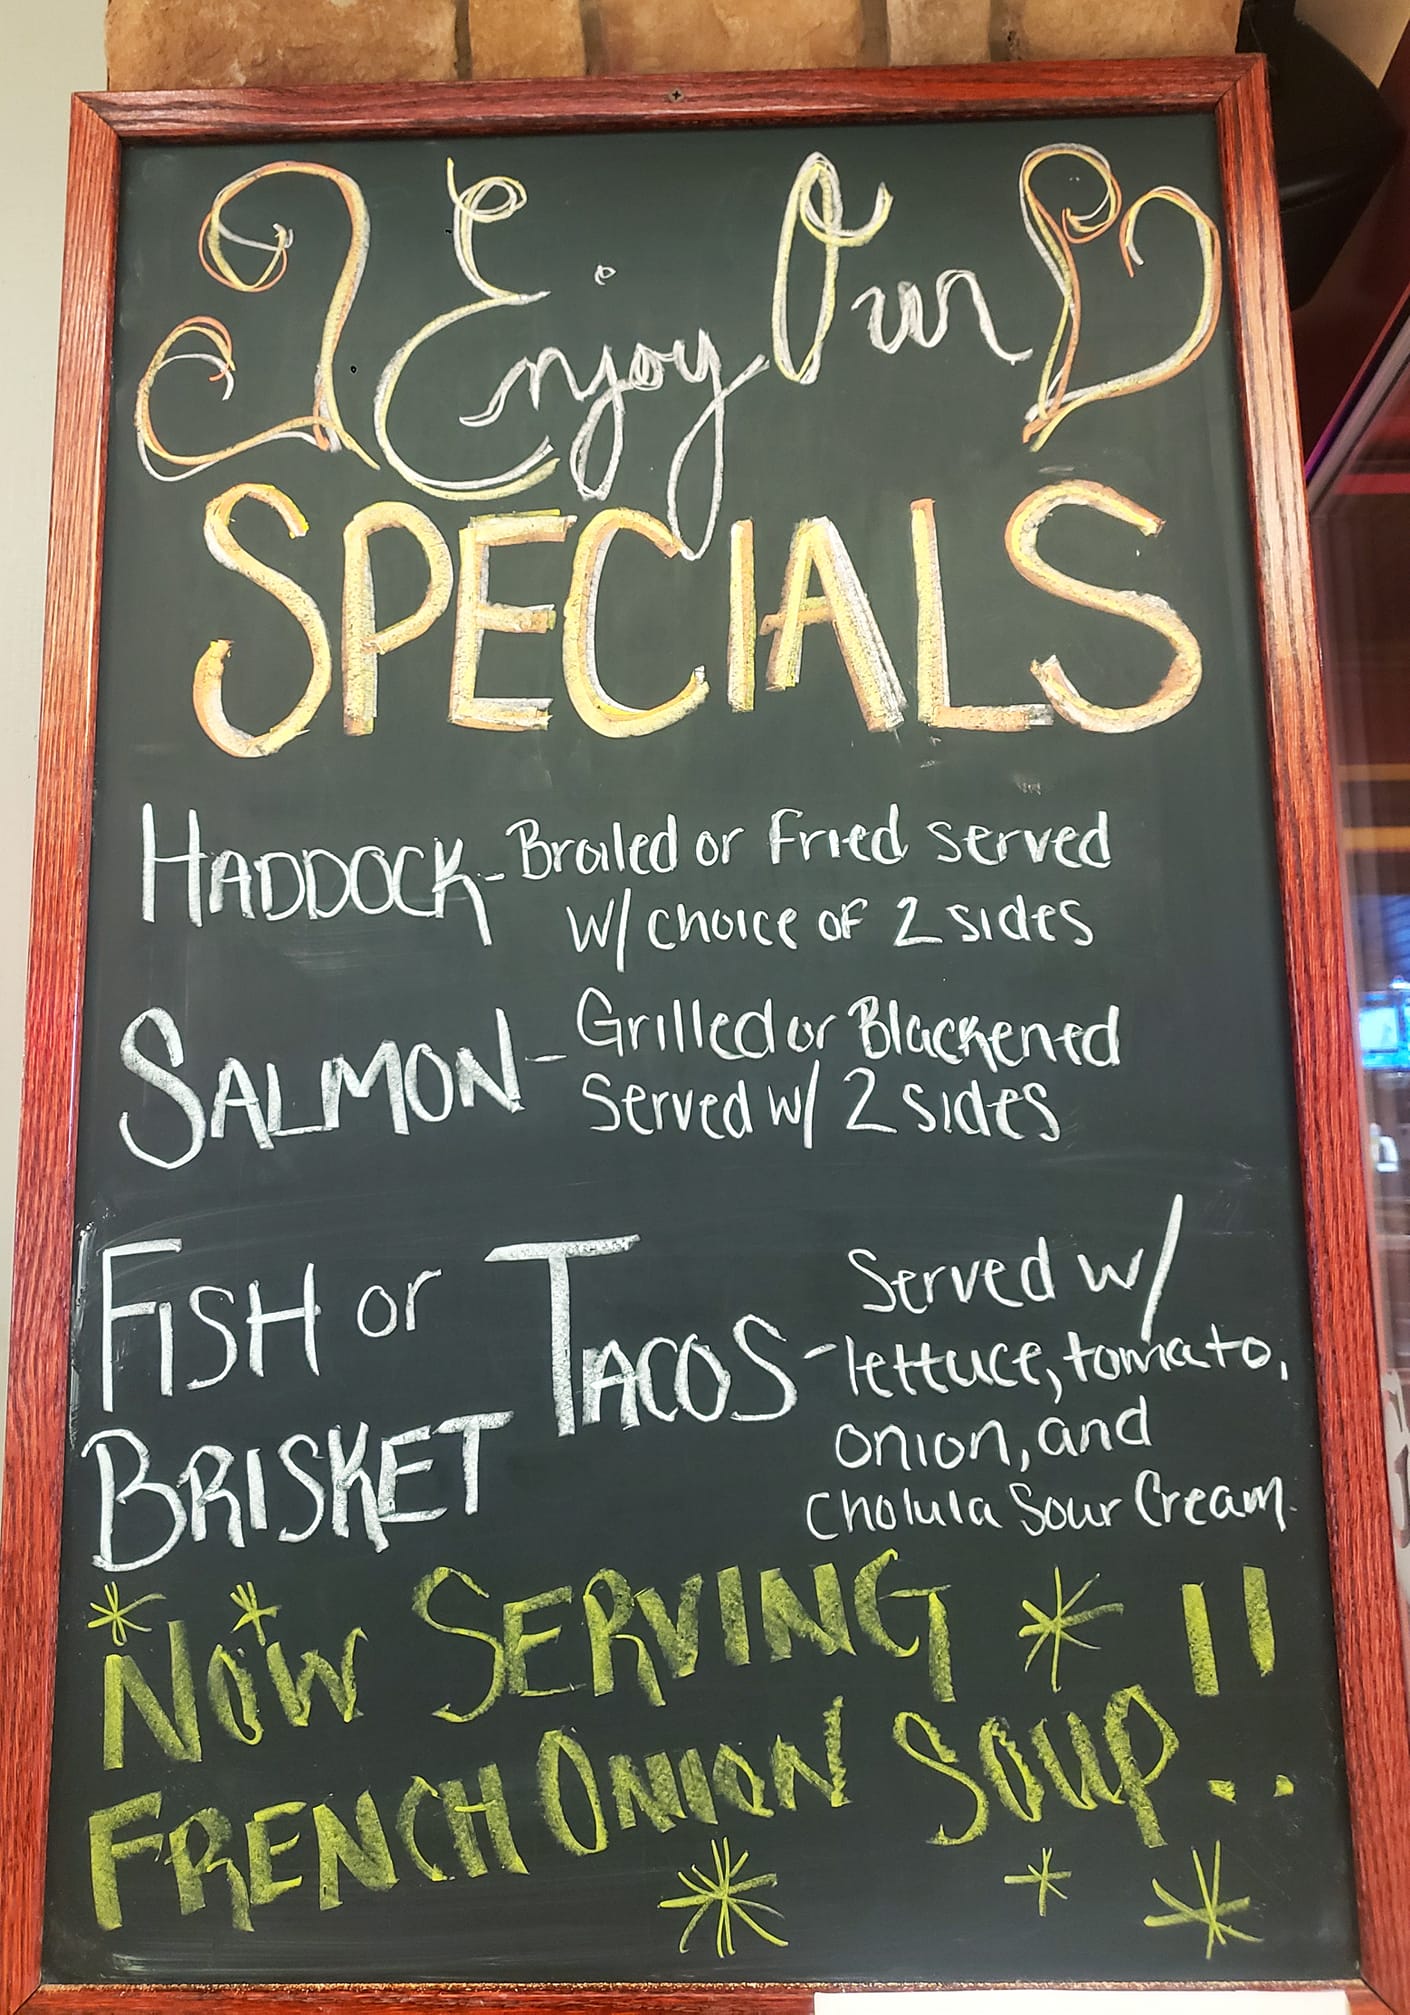 Enjoy Our
SPECIALS
HADDOCK - Broiled or Fried served
w/ choice of 2 sides
SALMON - Grilled or Blackened
Served w/ 2 sides
FISH or BRISKET TACOS - Served w/
lettuce, tomato,
onion, and
Cholula Sour Cream.
NOW SERVING
FRENCH ONION SOUP!!